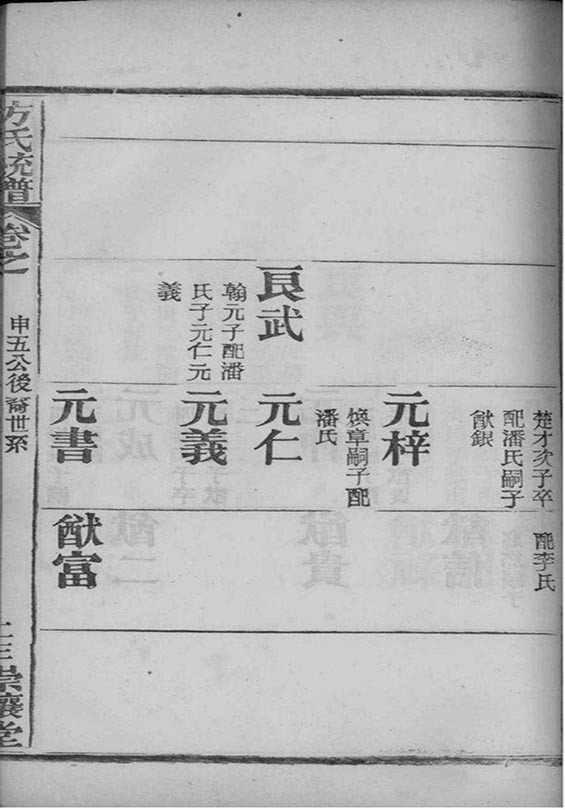 楚才次子卒
配潘氏嗣子
猷銀
配李氏
元梓
煥章嗣子配
潘氏
良武
翰元子配潘
氏子元仁元
義
元仁
元義
元書
猷富
方氏統譜
卷之
申五公後裔世系